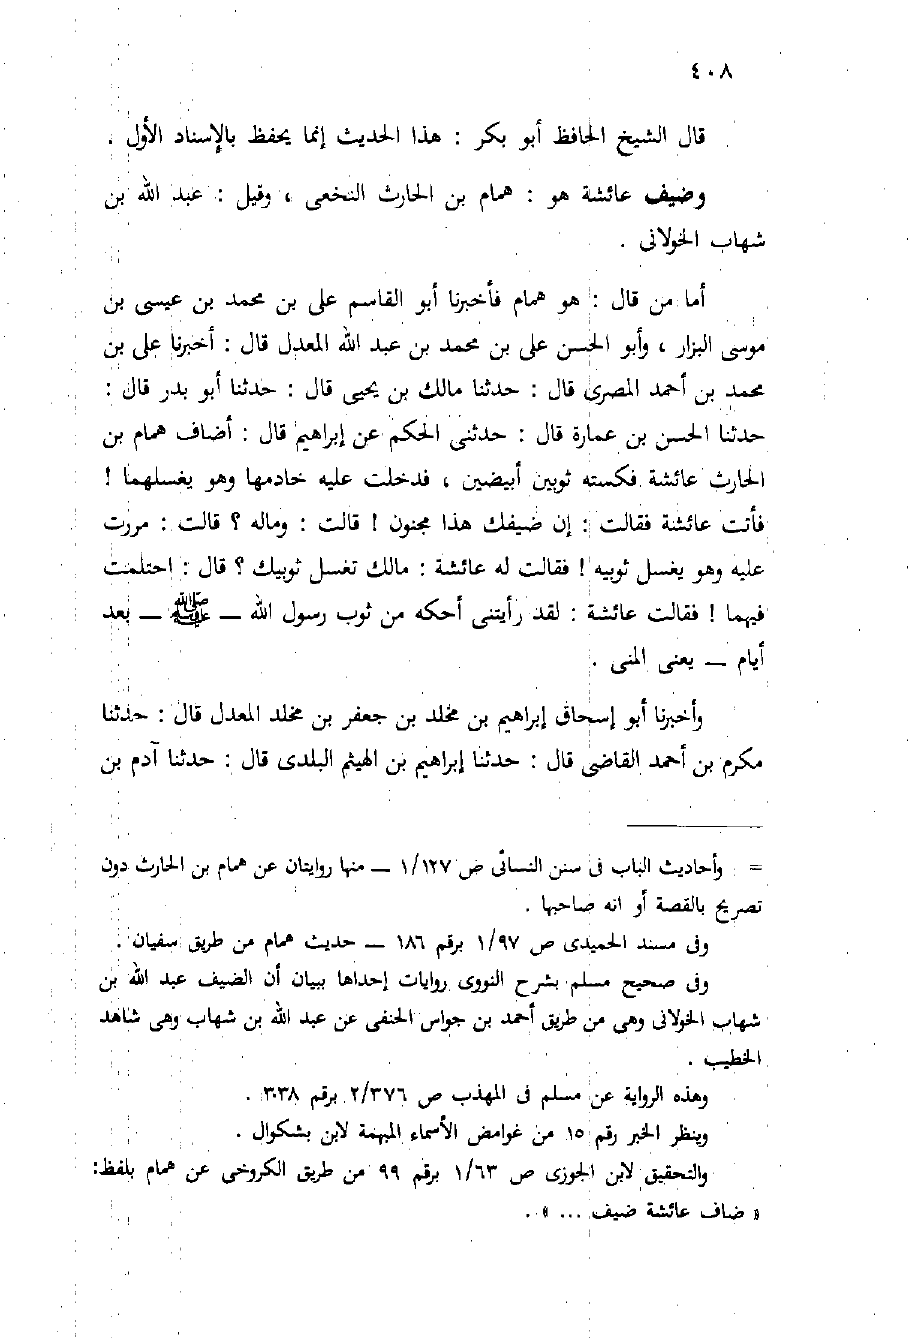 ٤٠٨
قال الشيخ الحافظ أبو بكر : هذا الحديث إنما يحفظ بالإسناد الأول .
وضيف عائشة هو : همام بن الحارث النخعى ، وقيل : عبد الله بن
شهاب الخولانى .
أما من قال : هو همام فأخبرنا أبو القاسم على بن محمد بن عيسى بن
موسى البزار ، وأبو الحسن على بن محمد بن عبد الله المعدل قال : أخبرنا على بن
محمد بن أحمد المصرى قال : حدثنا مالك بن يحيى قال : حدثنا أبو بدر قال :
حدثنا الحسن بن عمارة قال : حدثنى الحكم عن إبراهيم قال : أضاف همام بن
الحارث عائشة فكسته ثوبين أبيضين ، فدخلت عليه خادمها وهو يغسلهما !
فأتت عائشة فقالت : إن ضيفك هذا مجنون ! قالت : وماله ؟ قالت : مررت
عليه وهو يغسل ثوبيه ! فقالت له عائشة : مالك تغسل ثوبيك ؟ قال : احتلمت
فيهما ! فقالت عائشة : لقد رأيتنى أحكه من ثوب رسول الله ــ ﷺ ــ بعد
أيام ــ يعنى المنى .
وأخبرنا أبو إسحاق إبراهيم بن مخلد بن جعفر بن مخلد المعدل قال : حدثنا
مكرم بن أحمد القاضى قال : حدثنا إبراهيم بن الهيثم البلدى قال : حدثنا آدم بن
= وأحاديث الباب فى سنن النسائى ص ١/١٢٧ ــ منها روايتان عن همام بن الحارث دون
تصريح بالقصة أو انه صاحبها .
وفى مسند الحميدى ص ١/٩٧ برقم ١٨٦ ــ حديث همام من طريق سفيان .
وفى صحيح مسلم بشرح النووى روايات إحداها ببيان أن الضيف عبد الله بن
شهاب الخولانى وهى من طريق أحمد بن جواس الحنفى عن عبد الله بن شهاب وهى شاهد
الخطيب .
وهذه الرواية عن مسلم فى المهذب ص ٢/٣٧٦ برقم ٣٠٣٨ .
وينظر الخبر رقم ١٥ من غوامض الأسماء المبهمة لابن بشكوال .
والتحقيق لابن الجوزى ص ١/٦٣ برقم ٩٩ من طريق الكروخى عن همام بلفظ:
« ضاف عائشة ضيف ... » .